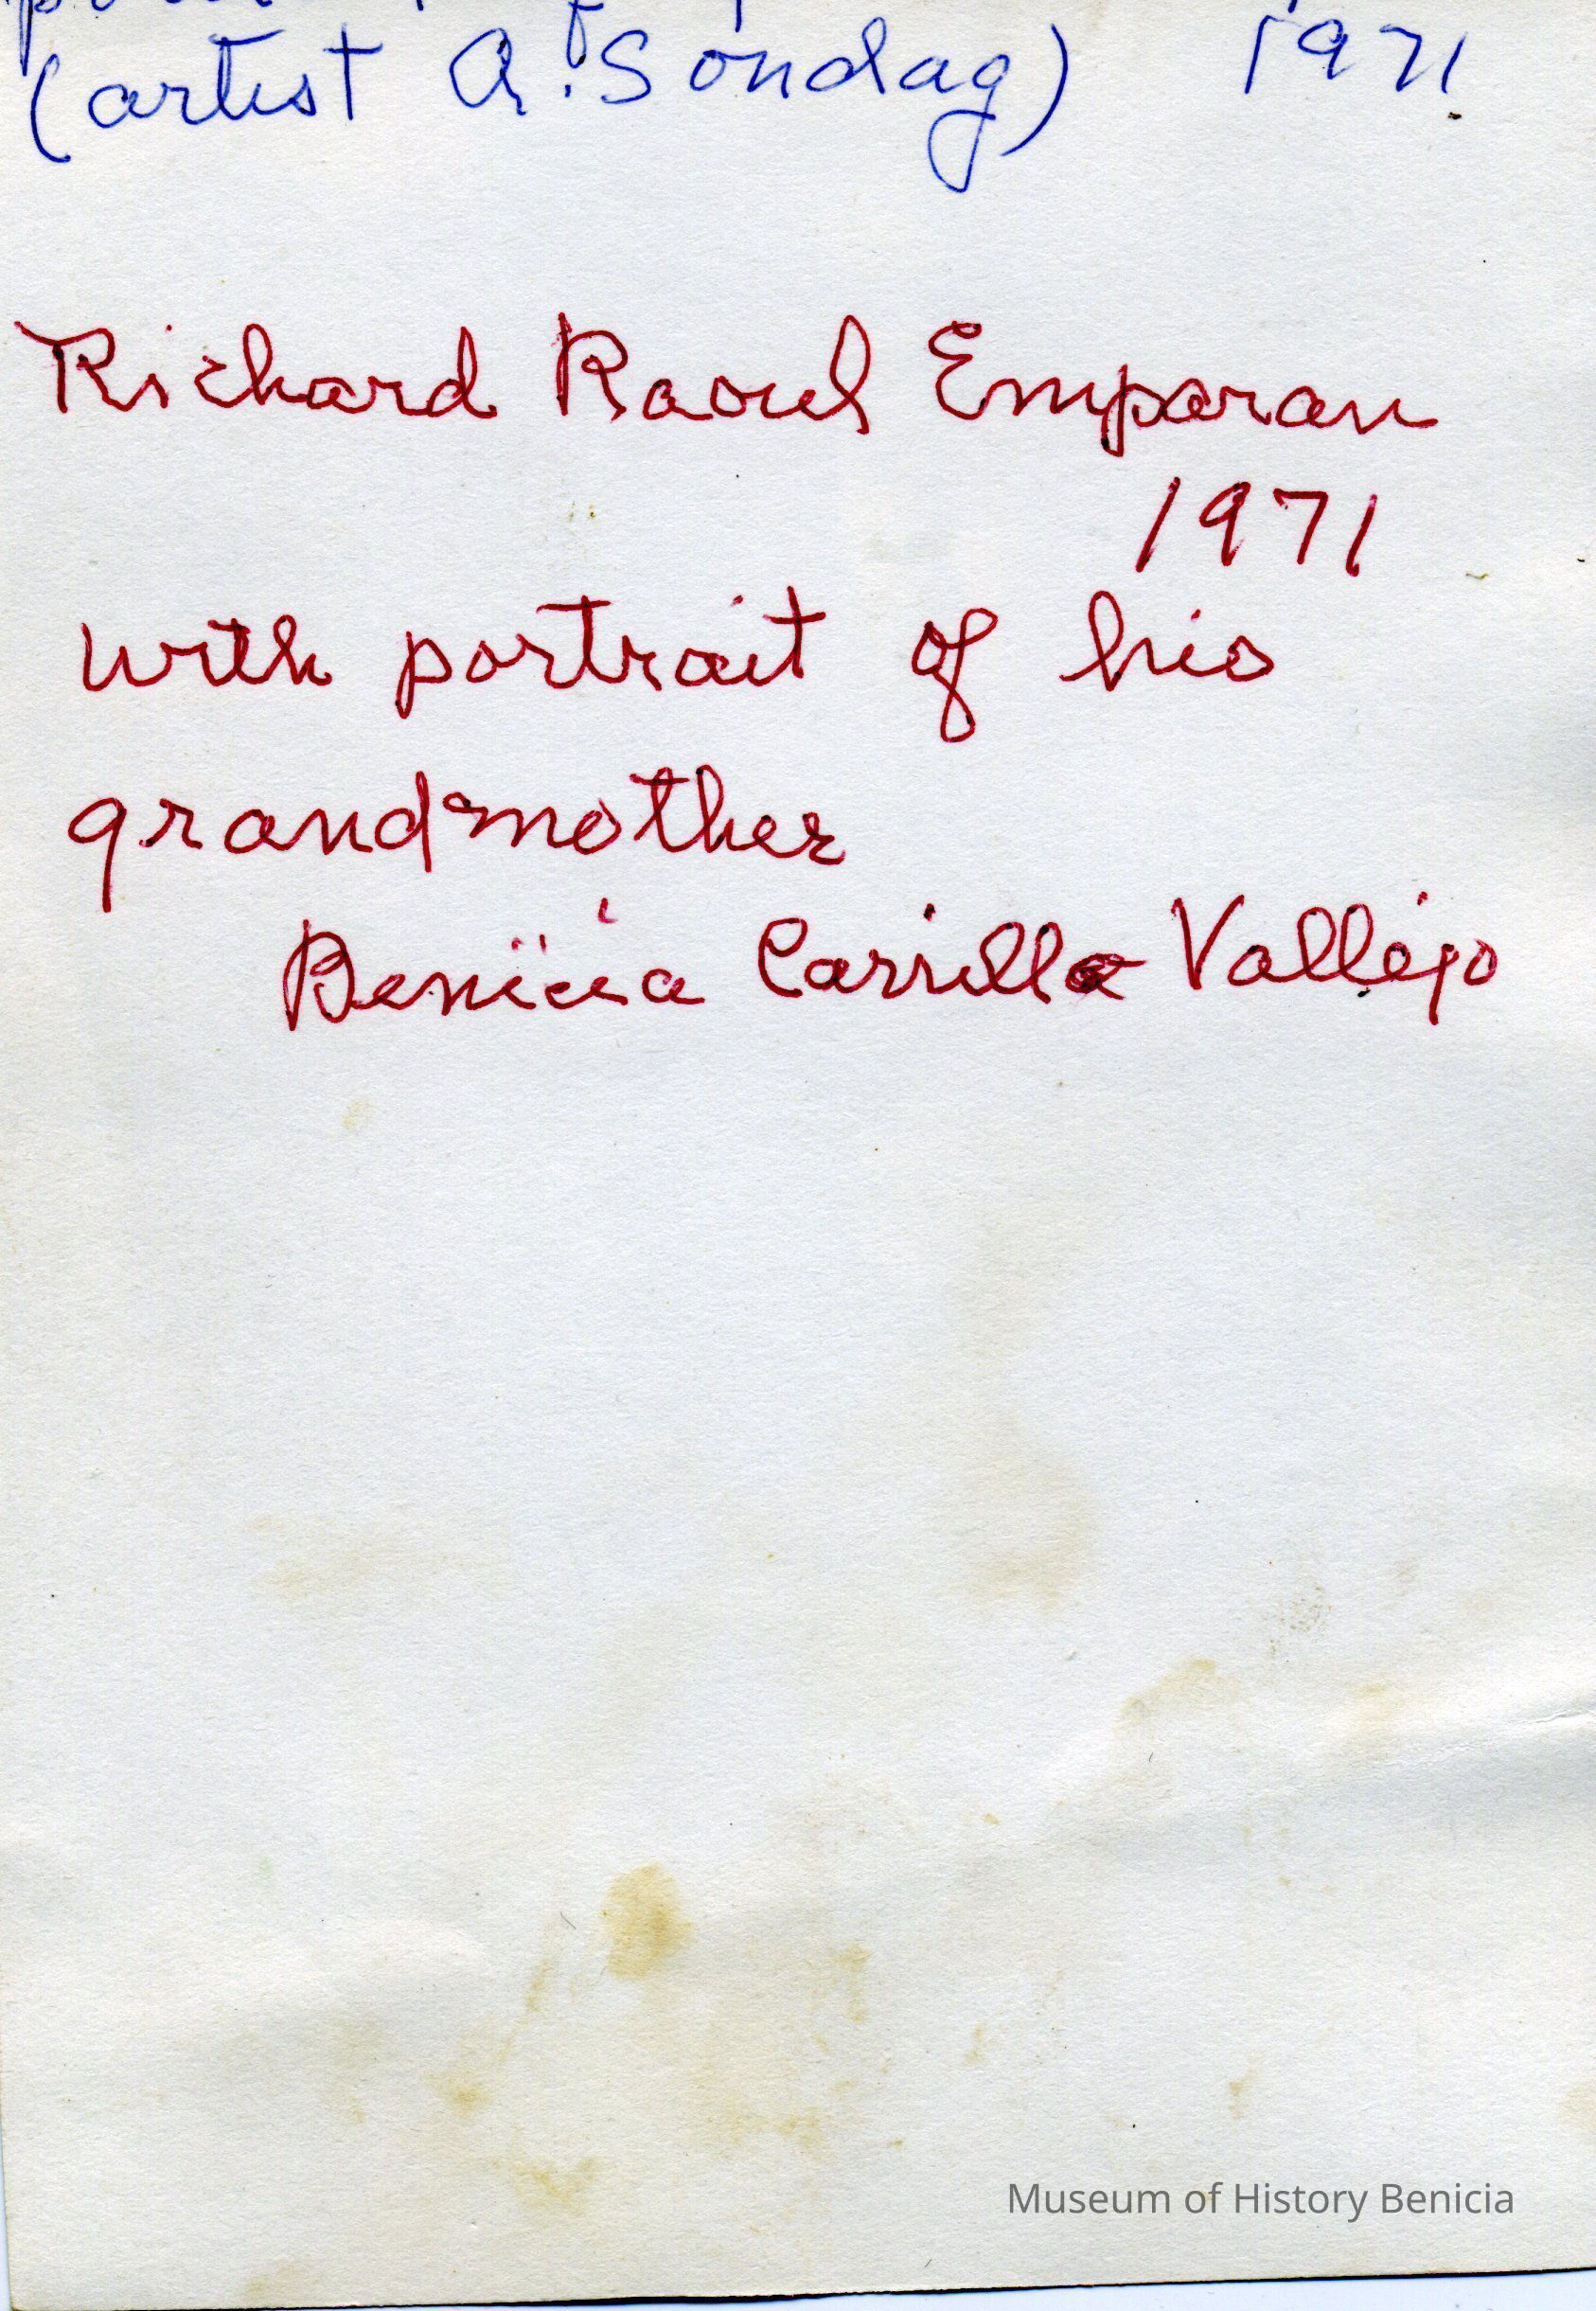 (artist A. Sondag) 1971
Richard Raoul Emparan
1971
with portrait of his
grandmother
Benicia Carrillo Vallejo
Museum of History Benicia